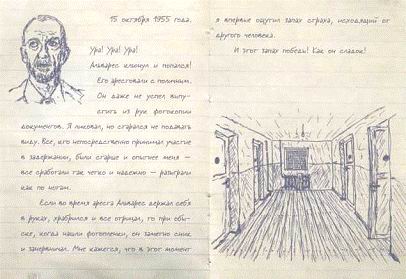 15 октября 1955 года.
Ура! Ура! Ура!
Альварес клюнул и попался!
Его арестовали с поличным.
Он даже не успел выпу-
стить из рук фотокопии
документов. Я ликовал, но старался не подавать
виду. Все, кто непосредственно принимал участие
в задержании, были старше и опытнее меня —
все сработали так четко и надежно — разыграли
как по нотам.
Если во время ареста Альварес держал себя
в руках, храбрился и все отрицал, то при обы-
ске, когда нашли фотопленки, он заметно сник
и занервничал. Мне кажется, что в этот момент
я впервые ощутил запах страха, исходящий от
другого человека.
И этот запах победы! Как он сладок!